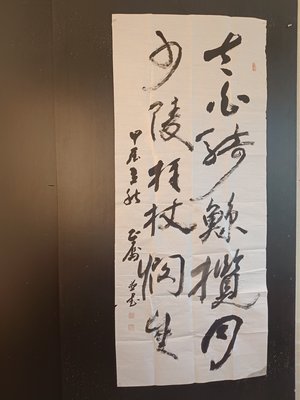 太白騎鯨攬月
少陵挂杖憫生
甲辰